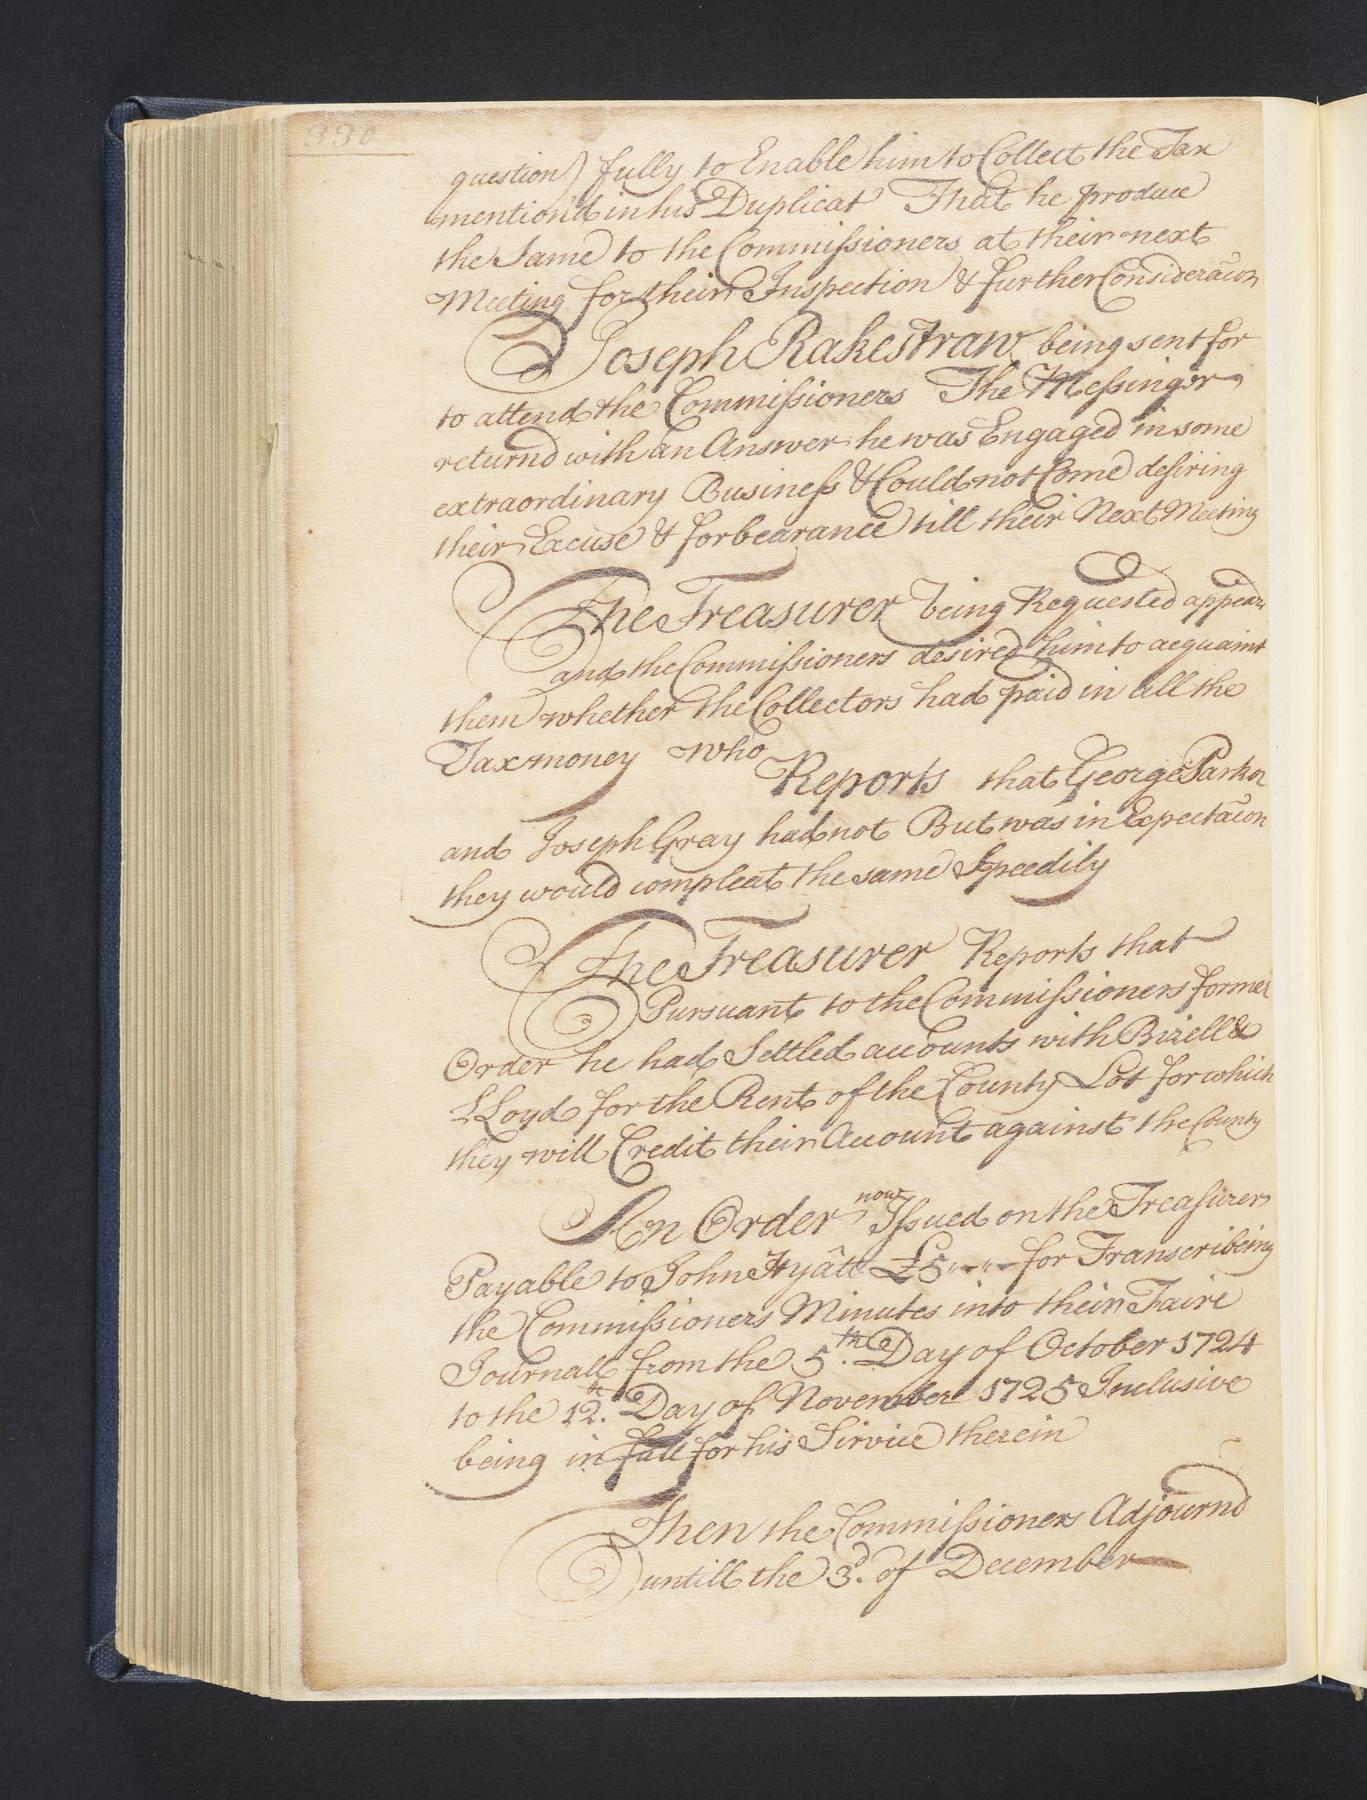 330
question) fully to Enable him to Collect the Tax
mention'd in his Duplicat That he produce
the Same to the Commissioners at their next
Meeting for their Inspection & further Consideracon
Joseph Rakestraw being sent for
to attend the Commissioners The Messinger
returnd with an Answer he was Engaged in some
extraordinary Business & Could not Come desiring
their Excuse & forbearance till their Next Meeting
The Treasurer being Requested appears
and the Commissioners desired him to acquaint
them whether the Collectors had paid in all the
Tax money who
Reports that George Parker
and Joseph Gray had not But was in Expectacon
they would compleat the same Speedily
The Treasurer Reports that
Pursuant to the Commissioners former
Order he had Settled accounts with Bizell &
LLoyd for the Rent of the County Lot for which
they will Credit their Account against the County
An Order now Issued on the Treasurer
Payable to John Hyatt £5 " - " - for Transcribeing
the Commissioners Minutes into their Faire
Journall from the 5th. Day of October 1724
to the 12th. Day of November 1725 Inclusive
being in full for his Service therein
Then the Commissioners Adjournd
untill the 3d. of December